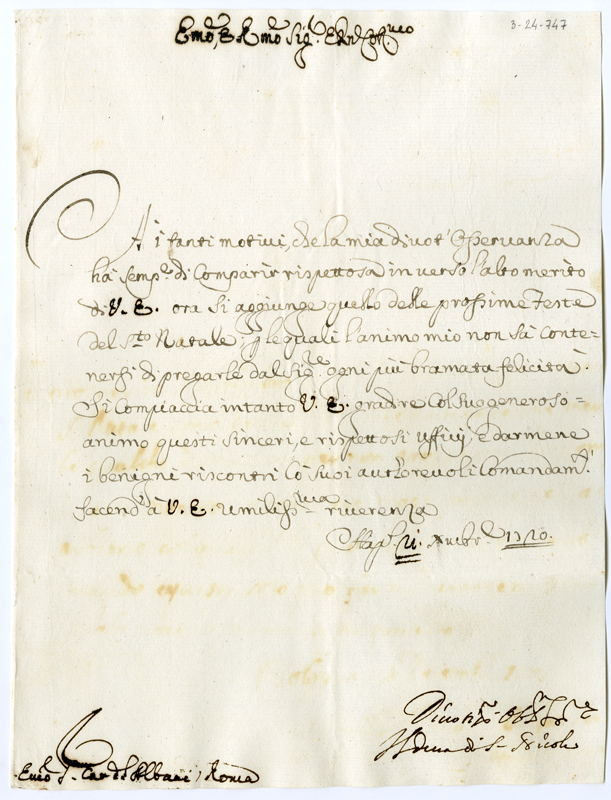 3-24-747
Emo, E Rmo Sigr. E Prõn Colmo
Ai tanti motivi, che la mia divot' Osservanza
hà sempe. di Comparir rispettosa in verso l'alto merito
di V. E. ora si aggiunge quello delle prossime feste
del Sto Natale; p le quali l'animo mio non sà conte-
nersi di pregarle dal Sigre. ogni più bramata felicità.
Si Compiaccia intanto V. E. gradire Col suo generoso
animo questi sinceri, e rispettosi Uffizij, e darmene
i benigni riscontri Co' suoi autorevoli Comandamti.
facendo à V. E. umilissma riverenza
Napl. 1720.
Divotmo Obbmo Sre
di S. Nicola
Emo Sr. Card. Albani, Roma